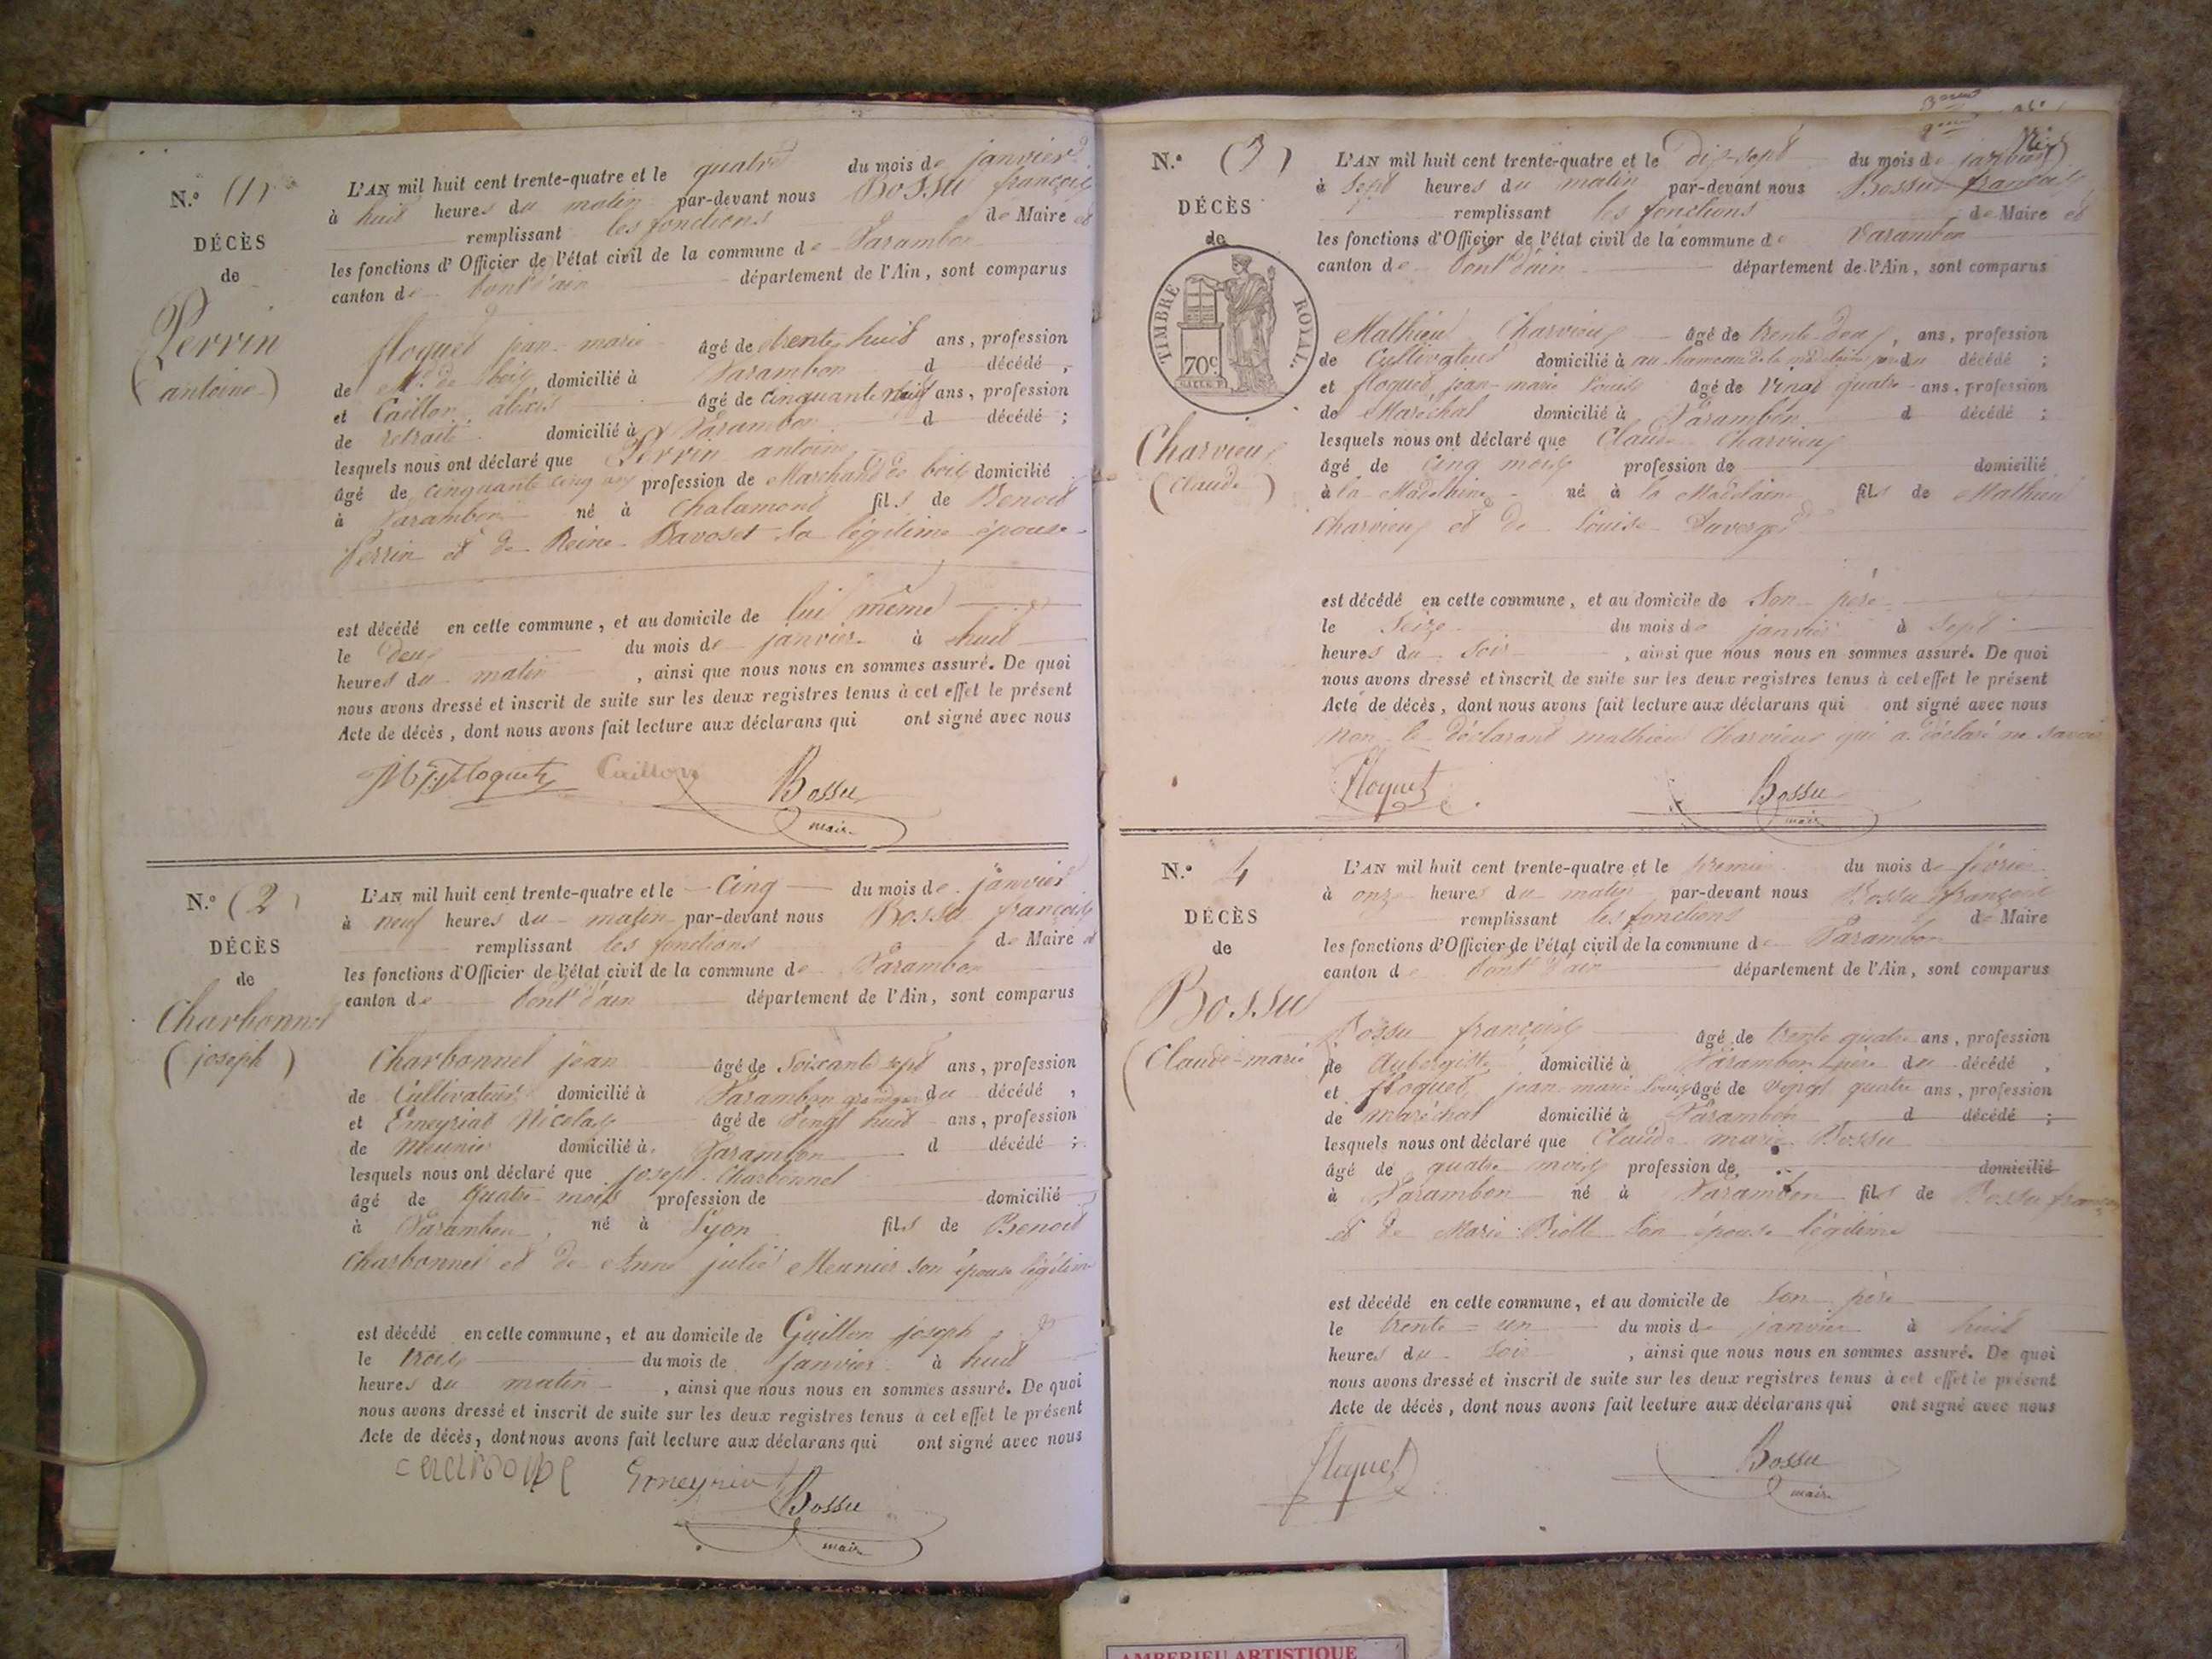 N.º (1)
DÉCÈS
de
Perrin
(antoine)
L'AN mil huit cent trente-quatre et le quatre du mois de janvier
à huit heures du matin par-devant nous Bossu françois
remplissant les fonctions de Maire et
les fonctions d'Officier de l'état civil de la commune de Varambon
canton de Pont d'ain département de l'Ain, sont comparus
floquet jean marie âgé de trente huit ans, profession
de Md de bois domicilié à Varambon d décédé,
et Caillon alexis âgé de cinquante neuf ans, profession
de retraité domicilié à Varambon d décédé;
lesquels nous ont déclaré que Perrin antoine
âgé de cinquante cinq ans profession de Marchand de bois domicilié
à Varambon né à Chalamont fils de Benoit
Perrin et de Reine Bavoset sa légitime épouse
est décédé en cette commune, et au domicile de lui même
le deux du mois de janvier à huit
heures du matin, ainsi que nous nous en sommes assuré. De quoi
nous avons dressé et inscrit de suite sur les deux registres tenus à cet effet le présent
Acte de décès, dont nous avons fait lecture aux déclarans qui ont signé avec nous
Floquet Caillon Bossu
maire
N.º (2)
DÉCÈS
de
Charbonnel
(joseph)
L'AN mil huit cent trente-quatre et le Cinq du mois de janvier
à neuf heures du matin par-devant nous Bossu françois
remplissant les fonctions de Maire et
les fonctions d'Officier de l'état civil de la commune de Varambon
canton de Pont d'ain département de l'Ain, sont comparus
Charbonnel jean âgé de Soixante sept ans, profession
de Cultivateur domicilié à Varambon du décédé,
et Emeyriat Nicolas âgé de Vingt huit ans, profession
de Meunier domicilié à Varambon d décédé;
lesquels nous ont déclaré que joseph Charbonnel
âgé de quatre mois profession de domicilié
à Varambon, né à Lyon fils de Benoit
Charbonnel et de Anne julie Meunier son épouse légitime
est décédé en cette commune, et au domicile de Guillon joseph
le trois du mois de janvier à huit
heures du matin, ainsi que nous nous en sommes assuré. De quoi
nous avons dressé et inscrit de suite sur les deux registres tenus à cet effet le présent
Acte de décès, dont nous avons fait lecture aux déclarans qui ont signé avec nous
Emeyriat
Bossu
maire
N.º (3)
DÉCÈS
de
TIMBRE ROYAL
70c
Charvieux
(Claude)
L'AN mil huit cent trente-quatre et le dix-sept du mois de janvier
à sept heures du matin par-devant nous Bossu françois
remplissant les fonctions de Maire et
les fonctions d'Officier de l'état civil de la commune de Varambon
canton de Pont d'ain département de l'Ain, sont comparus
Mathieu Charvieux âgé de trente deux, ans, profession
de Cultivateur domicilié à au hameau de la madelaine père du décédé;
et floquet jean-marie Louis âgé de Vingt quatre ans, profession
de Maréchal domicilié à Varambon d décédé;
lesquels nous ont déclaré que Claude Charvieux
âgé de cinq mois profession de domicilié
à la Madelaine né à la Madelaine fils de Mathieu
Charvieux et de Louise
est décédé en cette commune, et au domicile de Son père
le Seize du mois de janvier à Sept
heures du soir, ainsi que nous nous en sommes assuré. De quoi
nous avons dressé et inscrit de suite sur les deux registres tenus à cet effet le présent
Acte de décès, dont nous avons fait lecture aux déclarans qui ont signé avec nous
non le déclarant mathieu Charvieux qui a déclaré ne savoir
Floquet Bossu
maire
N.º 4
DÉCÈS
de
Bossu
(Claude-marie)
L'AN mil huit cent trente-quatre et le premier du mois de février
à onze heures du matin par-devant nous Bossu françois
remplissant les fonctions de Maire
les fonctions d'Officier de l'état civil de la commune de Varambon
canton de Pont d'ain département de l'Ain, sont comparus
Bossu françois âgé de trente quatre ans, profession
de Aubergiste domicilié à Varambon père du décédé,
et floquet jean marie Louis âgé de vingt quatre ans, profession
de maréchal domicilié à Varambon d décédé;
lesquels nous ont déclaré que Claude marie Bossu
âgé de quatre mois profession de domicilié
à Varambon né à Varambon fils de Bossu françois
et de Marie Biolle son épouse légitime
est décédé en cette commune, et au domicile de son père
le trente-un du mois de janvier à huit
heures du soir, ainsi que nous nous en sommes assuré. De quoi
nous avons dressé et inscrit de suite sur les deux registres tenus à cet effet le présent
Acte de décès, dont nous avons fait lecture aux déclarans qui ont signé avec nous
Floquet Bossu
maire
AMBERIEU ARTISTIQUE